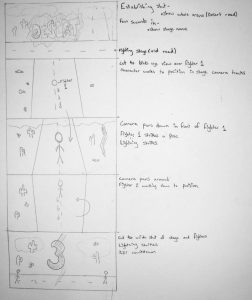 Establishing shot-
- show whole arena (Desert road)
Few seconds in-
- show stage name
Fighting stage (on road)
Fighter
1
Cut to birds eye view over Fighter 1
Character walks to position in stage, camera tracks
Camera pans down in front of Fighter 1
Fighter 1 strikes a pose
Lightning strikes
Camera pans around
Fighter 2 walking town to position
3
Cut to wide shot of stage and fighters
Lightning strikes
321 countdown